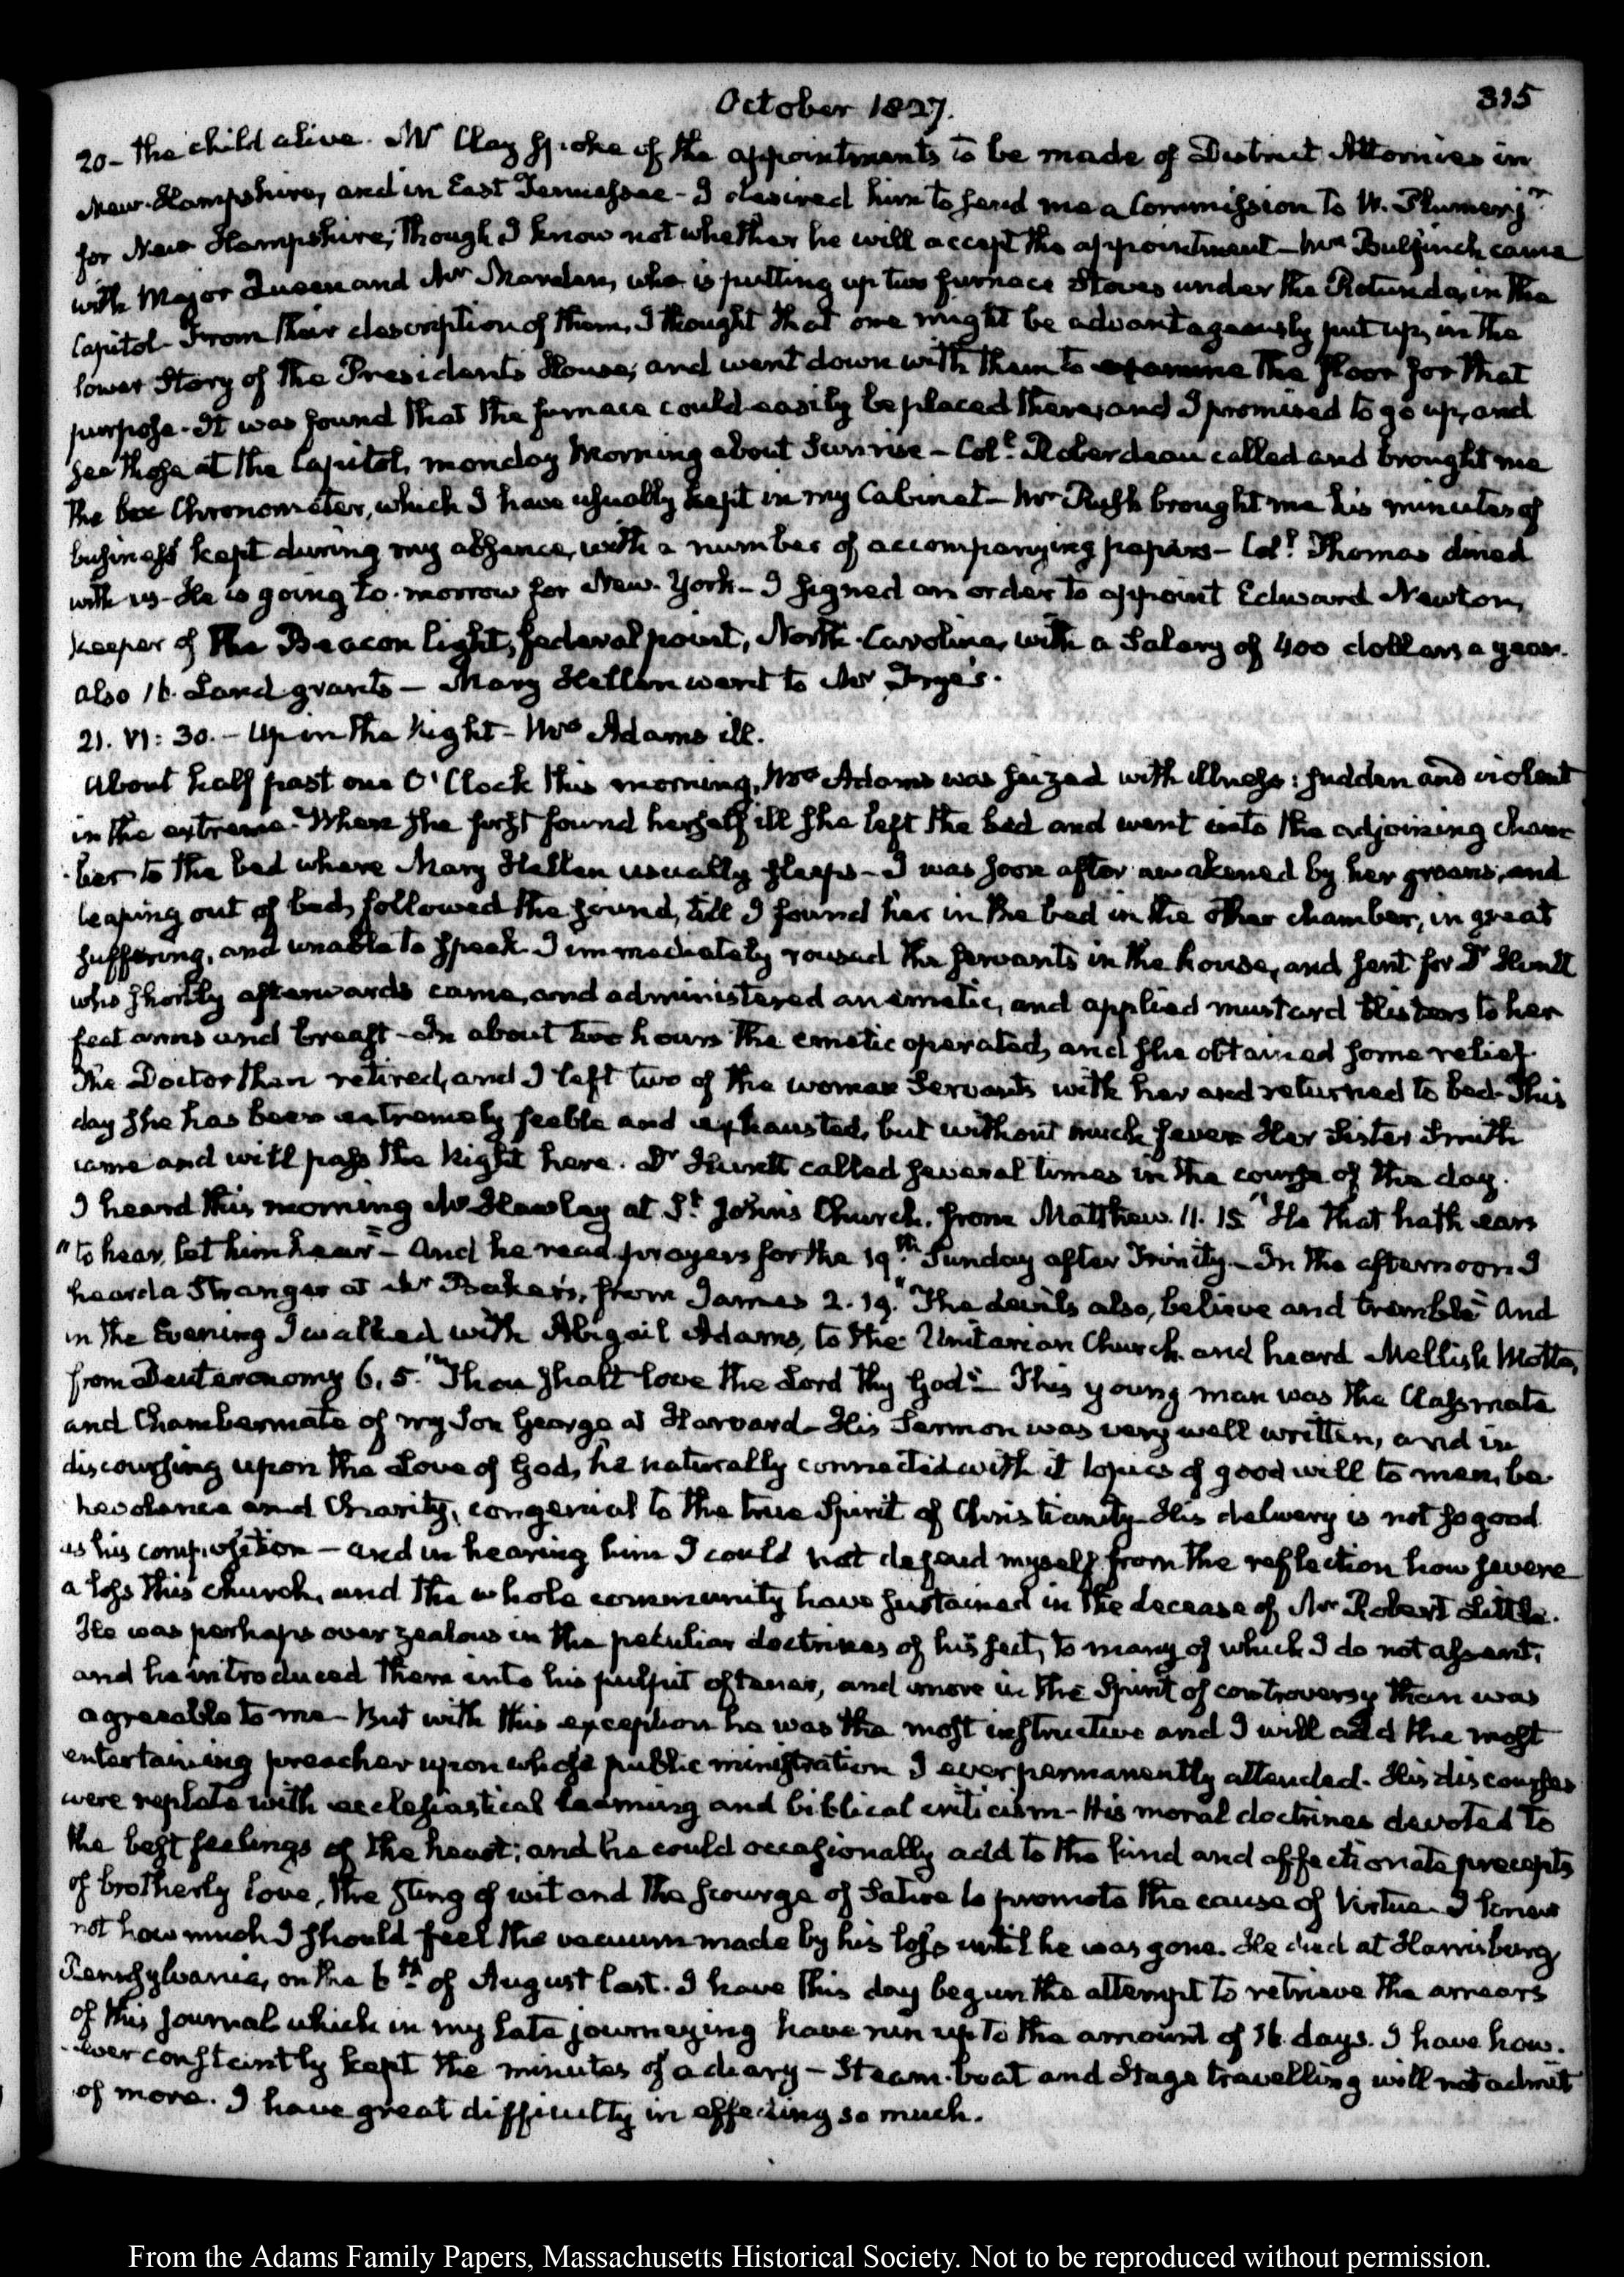 October 1827.
315
20- the child alive. Mr Clay spoke of the appointments to be made of District Attornies in
New-Hampshire, and in East Tennessee - I desired him to send me a Commission to W. Plumer jr
for New Hampshire, though I know not whether he will accept the appointment - Mr Bulfinch came
with Major and Mr who is putting up two furnace Stoves under the Rotunda, in the
Capitol - From their description of them, I thought that one might be advantageously put up, in the
lower Story of the Presidents House, and went down with them to examine the floor for that
purpose - It was found that the furnace could easily be placed there, and I promised to go up, and
see those at the Capitol, monday Morning about Sunrise - Coll. Roberdeau called and brought me
the box Chronometer, which I have usually kept in my Cabinet - Mr Rush brought me his minutes of
business kept during my absence, with a number of accompanying papers - Coll. Thomas dined
with us - He is going to-morrow for New-York - I signed an order to appoint Edward Newton,
keeper of the Beacon light, federal point, North-Carolina, with a Salary of 400 dollars a year.
also 16. Land grants - Mary Hellen went to Mr Frye's.
21. VI: 30. - Up in the Night - Mrs Adams ill.
About half past one O'Clock this morning, Mrs Adams was seized with illness: sudden and violent
in the extreme - When she first found herself ill she left the bed and went into the adjoining cham
ber to the bed where Mary Hellen usually sleeps - I was soon after awakened by her groans, and
leaping out of bed, followed the sound, till I found her in the bed in the other chamber, in great
suffering, and unable to speak - I immediately roused the servants in the house, and sent for Dr Huntt
who shortly afterwards came, and administered an emetic, and applied mustard blisters to her
feet arms and breast - In about two hours the emetic operated, and she obtained some relief.
The Doctor then retired, and I left two of the woman Servants with her and returned to bed - This
day she has been extremely feeble and exhausted, but without much fever - Her Sister Smith
came and will pass the Night here. Dr Huntt called several times in the course of the day.
I heard this morning Mr Hawley at St. John's Church, from Matthew. 11. 15. "He that hath ears
"to hear, let him hear" - And he read prayers for the 19th. Sunday after Trinity - In the afternoon I
heard a Stranger at Mr Baker's, from James 2. 19. "The devils also, believe and tremble" And
in the Evening I walked with Abigail Adams, to the Unitarian Church and heard Mellish Motte,
from Deuteronomy 6, 5. "Thou shalt love the Lord thy God" - This young man was the Classmate
and Chambermate of my Son George at Harvard - His Sermon was very well written, and in
discoursing upon the Love of God, he naturally connected with it topics of good will to men, be
nevolence and Charity, congenial to the true Spirit of Christianity - His delivery is not so good
as his composition - and in hearing him I could not defend myself from the reflection how severe
a loss this church, and the whole community have sustained in the decease of Mr Robert Little.
He was perhaps over zealous in the peculiar doctrines of his sect, to many of which I do not assent,
and he introduced them into his pulpit oftener, and more in the Spirit of controversy than was
agreeable to me - But with this exception he was the most instructive and I will add the most
entertaining preacher upon whose public ministration I ever permanently attended. His discourses
were replete with ecclesiastical learning and biblical criticism - His moral doctrines devoted to
the best feelings of the heart; and he could occasionally add to the kind and affectionate precepts
of brotherly love, the sting of wit and the scourge of Satire to promote the cause of Virtue. I knew
not how much I should feel the vacuum made by his loss until he was gone. He died at Harrisburg
Pennsylvania, on the 6th of August last. I have this day begun the attempt to retrieve the arrears
of this journal which in my late journeying have run up to the amount of 16 days. I have how-
-ever constantly kept the minutes of a diary - Steam-boat and Stage travelling will not admit
of more. I have great difficulty in effecting so much.
From the Adams Family Papers, Massachusetts Historical Society. Not to be reproduced without permission.